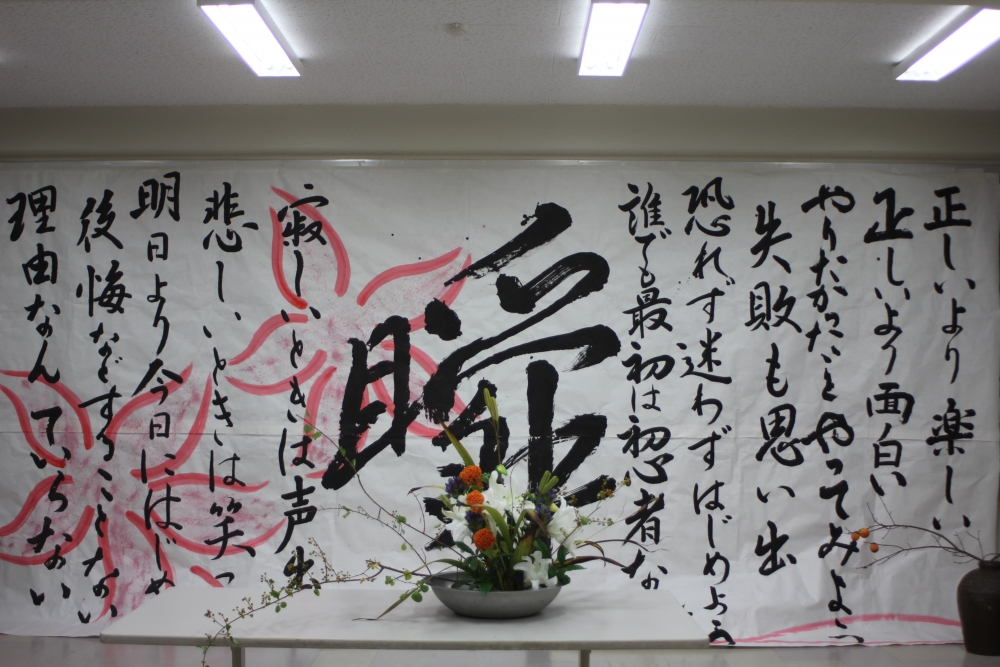 正しいより楽しい
正しいより面白い
やりたかったことやってみよう
失敗も思い出
恐れず迷わずはじめよう
誰でも最初は初心者な
寂しいときは声出
悲しいときは笑っ
明日より今日にはじ
後悔などすることない
理由なんていらない